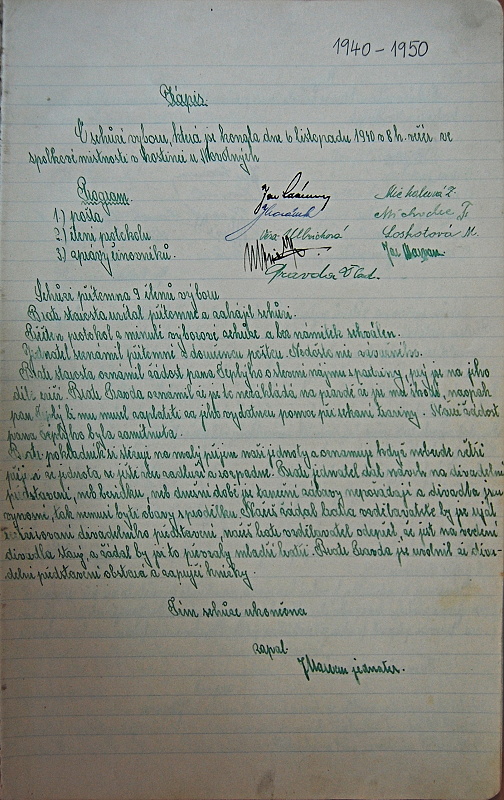 1940-1950
Zápis.
O schůzi výboru, která se konala dne 6 listopadu 1940 v 8 h. večer ve
spolkové místnosti v hostinci u Novotných
Program.
1.) pošta
2.) čtení protokolu
3.) zprávy činovníků.
Věra Ulbrichová
Pravda Vlad.
Michalcová Z.
Loskotová M.
Jar.
Schůzi přítomno 9 členů výboru
Bratr starosta uvítal přítomné a zahájil schůzi.
Přečten protokol z minulé výborové schůze a bez námitek schválen.
Jednatel seznámil přítomné s docházející poštou. Nedošlo nic závažného.
Bratr starosta oznámil žádost pana Teplého o slevení nájmu zparceliny, prý je na jeho
díle menší. Bratr Pravda oznámil že se to nezakládá na pravdě že je mu škodil, naopak
pan Teplý by mu musel zaplatiti za jeho vydatnou pomoc při sekání traviny. Načež žádost
pana Teplého byla zamítnuta.
Bratr pokladník si stěžuje na malý příjem naší jednoty a oznamuje když nebude větší
příjem že jednota se ještě více zadluží a rozpadne. Bratr jednatel dal návrh na divadelní
představení, neb besídku, neb v dnešní době se taneční zábavy neprovádějí a divadla jsou
výnosné, tak nemusí býti obavy z prodělku. Načež žádal bratra vzdělavatele by se ujal
režisérování divadelního představení, načež bratr vzdělavatel odepřel, že jest na vedení
divadla starý, a žádal by se to převzaly mladší bratři. Bratr Pravda se uvolnil že diva-
delní představení obstará a zapůjčí knížky.
Tím schůze ukončena
zapsal.
jednatel.